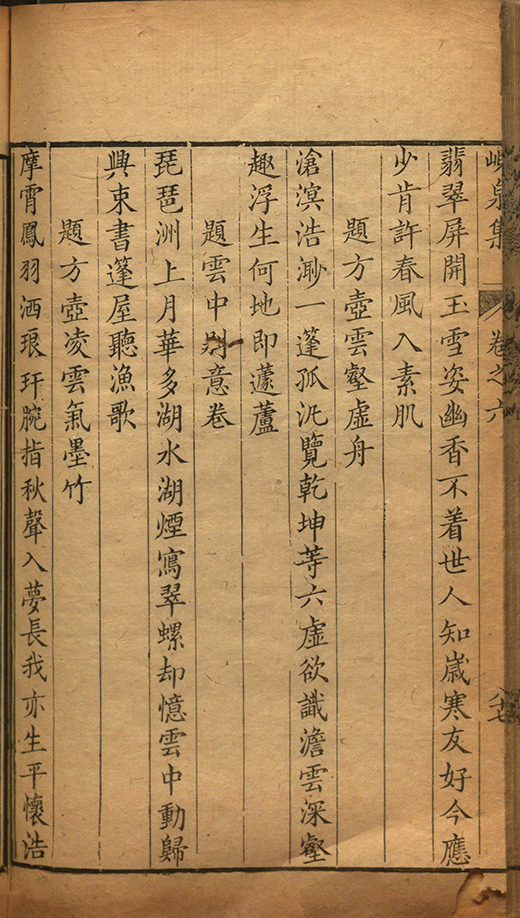 峴泉集 卷之六 八十七
翡翠屏開玉雪姿幽香不着世人知歲寒友好今應
少肯許春風入素肌
題方壺雲壑虛舟
滄溟浩渺一篷孤汎覽乾坤等六虛欲識澹雲深壑
趣浮生何地即蘧蘆
題雲中意卷
琵琶洲上月華多湖水湖煙寫翠螺却憶雲中動歸
興束書篷屋聽漁歌
題方壺凌雲氣墨竹
摩霄鳳羽洒琅玕腕指秋聲入夢長我亦生平懷浩